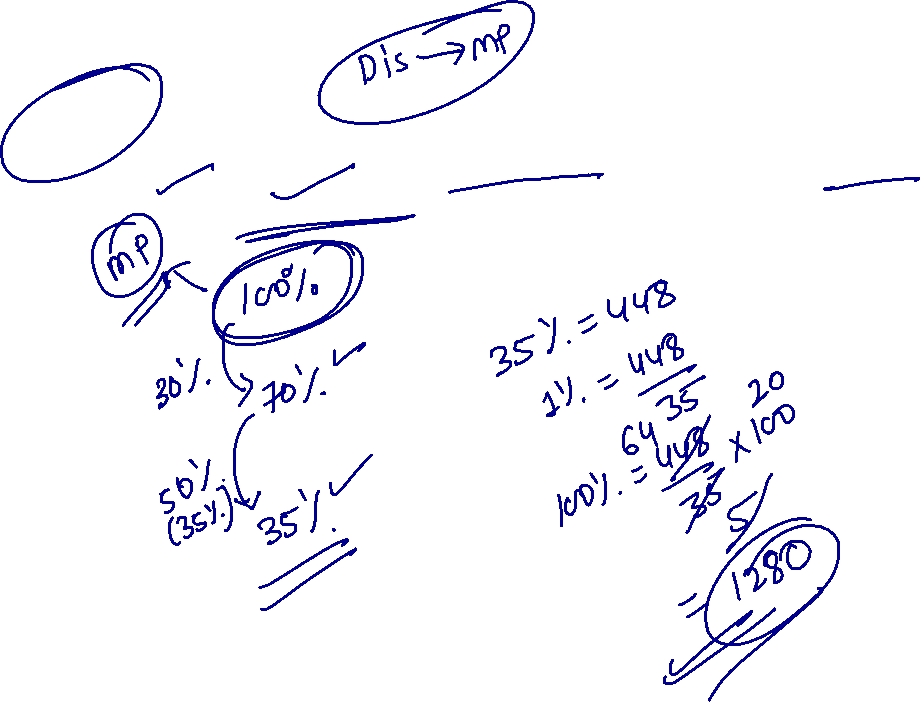 Dis → MP
MP
100%
30%. 70%.
50%.
(35%.) 35%.
35%. = 448
1%. = 448
35
64 20
100%. = 448 × 100
35
5
= 1280